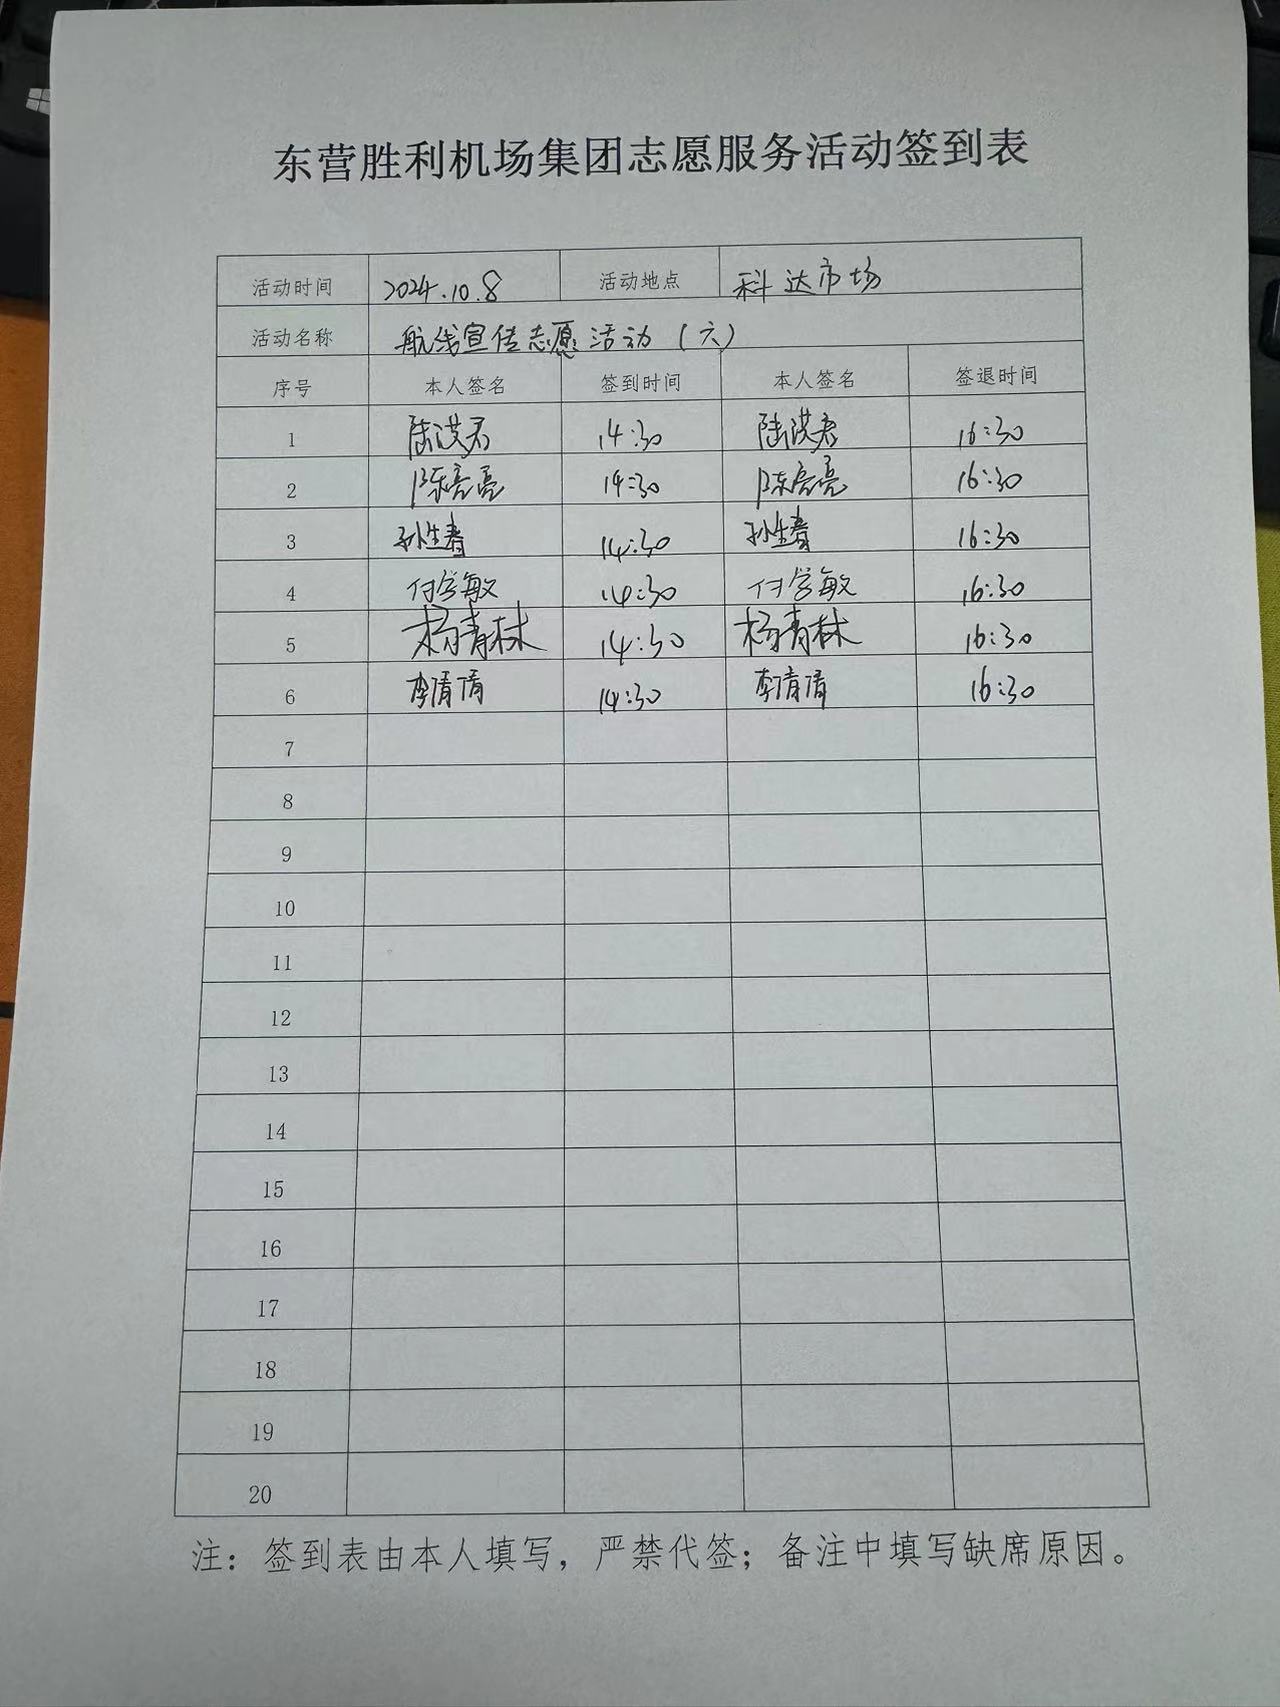 东营胜利机场集团志愿服务活动签到表
活动时间 2024.10.8 活动地点 科达市场
活动名称 航线宣传志愿活动(六)
序号 本人签名 签到时间 本人签名 签退时间
1 陆洪君 14:30 陆洪君 16:30
2 陈亮亮 14:30 陈亮亮 16:30
3 孙生春 14:30 孙生春 16:30
4 付学敏 14:30 付学敏 16:30
5 杨青林 14:30 杨青林 16:30
6 李倩倩 14:30 李倩倩 16:30
7
8
9
10
11
12
13
14
15
16
17
18
19
20
注：签到表由本人填写，严禁代签；备注中填写缺席原因。